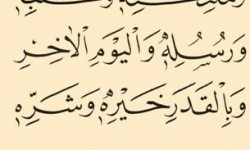 وَرُسُلِهٖ وَالْيَوْمِ الْاٰخِرِ
وَبِالْقَدَرِ خَيْرِهٖ وَشَرِّهٖ